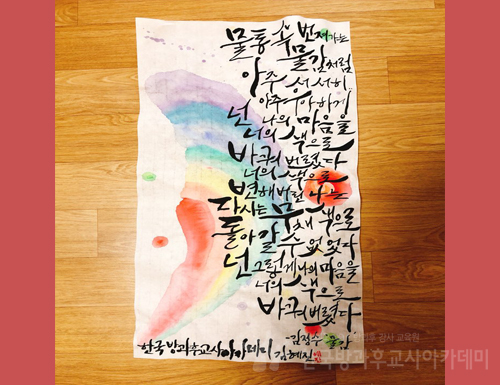 물통 속 번져가는
물감처럼
아주 서서히
아주 우아하게
넌 나의 마음을
너의 색으로
바꿔 버렸다
너의 색으로
변해버린 나는
다시는 무채색으로
돌아갈 수 없었다
넌 그렇게 나의 마음을
너의 색으로
바꿔버렸다
-김정수 '물감'
한국방과후교사아카데미 김혜진
한국방과후교사아카데미